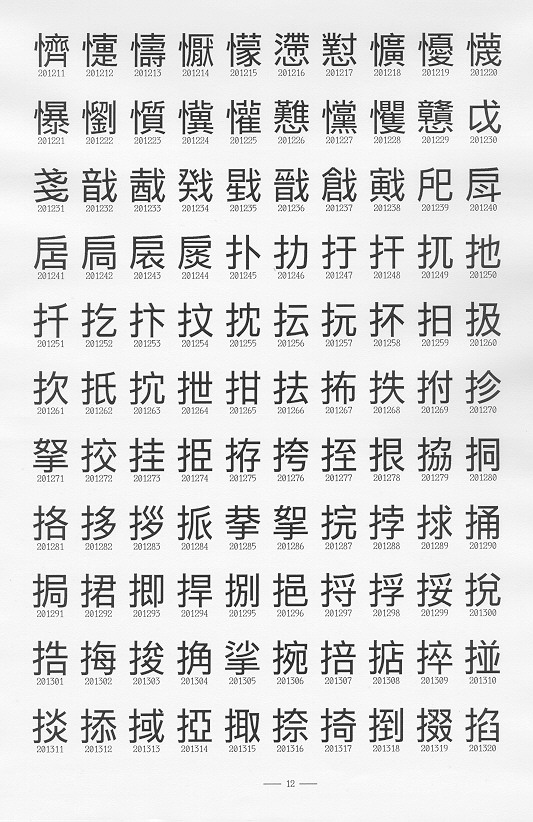 懠 懤 懨 懞 懘 懟 懭 懮 懱
201211 201212 201213 201214 201215 201216 201217 201218 201219 201220
懪 懰 懫 懻 懽 戁 戃 戄 戇 戉
201221 201222 201223 201224 201225 201226 201227 201228 201229 201230
戔 戠 戣 戥 戩 戧 戭 戺
201231 201232 201233 201234 201235 201236 201237 201238 201239 201240
扂 扃 扆 扊 扑 扐 扜 扞 扤 扡
201241 201242 201243 201244 201245 201246 201247 201248 201249 201250
扦 扢 抃 抆 抌 抎 抏 抔 抇 扱
201251 201252 201253 201254 201255 201256 201257 201258 201259 201260
扻 扺 抭 抴 拑 抾 抪 抶 拊 抮
201261 201262 201263 201264 201265 201266 201267 201268 201269 201270
拏 挍 挂 挋 拵 挎 挃 拫 拹 挏
201271 201272 201273 201274 201275 201276 201277 201278 201279 201280
挌 拸 拶 拲 挐 捖 挬 捄 捅
201281 201282 201283 201284 201285 201286 201287 201288 201289 201290
挶 捃 揤 捍 捌 挹 捋 捊 挼 捝
201291 201292 201293 201294 201295 201296 201297 201298 201299 201300
捁 挴 捘 捔 挲 捥 掊 掂 捽 掽
201301 201302 201303 201304 201305 201306 201307 201308 201309 201310
掞 掭 掝 掗 掫 捺 掎 捯 掇 掐
201311 201312 201313 201314 201315 201316 201317 201318 201319 201320
— 12 —